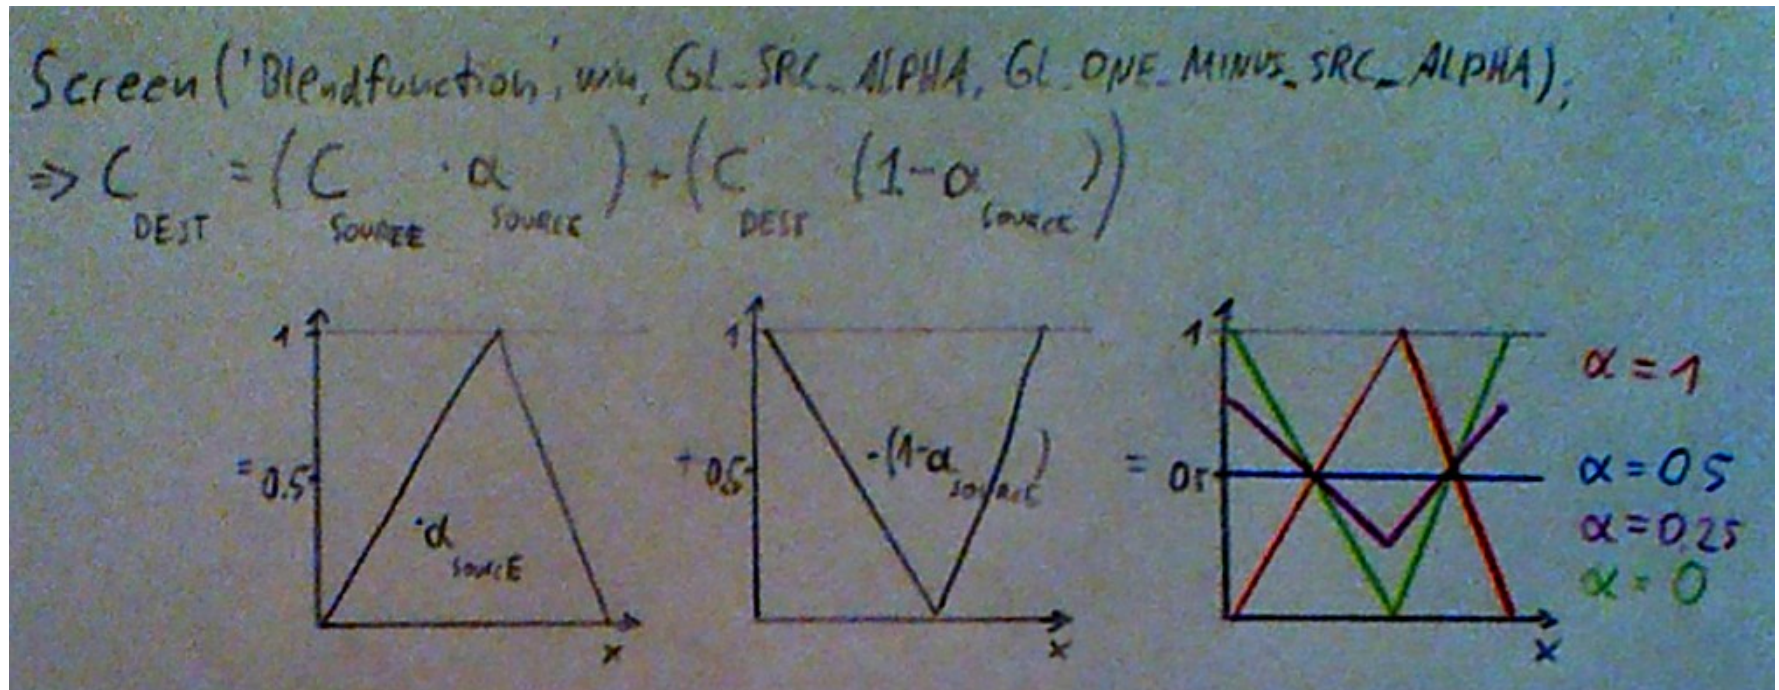 Screen('Blendfunction', win, GL_SRC_ALPHA, GL_ONE_MINUS_SRC_ALPHA);
⇒ C DEST = (C SOURCE · α SOURCE) + (C DEST (1-α SOURCE))
1
= 0.5
·α SOURCE
x
1
+ 0.5
·(1-α SOURCE)
x
1
= 0.5
x
α = 1
α = 0.5
α = 0.25
α = 0